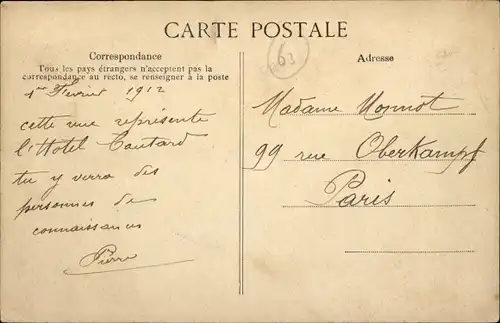 CARTE POSTALE
63
Correspondance
Tous les pays étrangers n'acceptent pas la
correspondance au recto, se renseigner à la poste
Adresse
1er Février 1912
cette vue représente
l'Hotel Coutard
tu y verra des
personnes de
connaissances
Pierre
Madame Monnot
99 rue Oberkampf
Paris